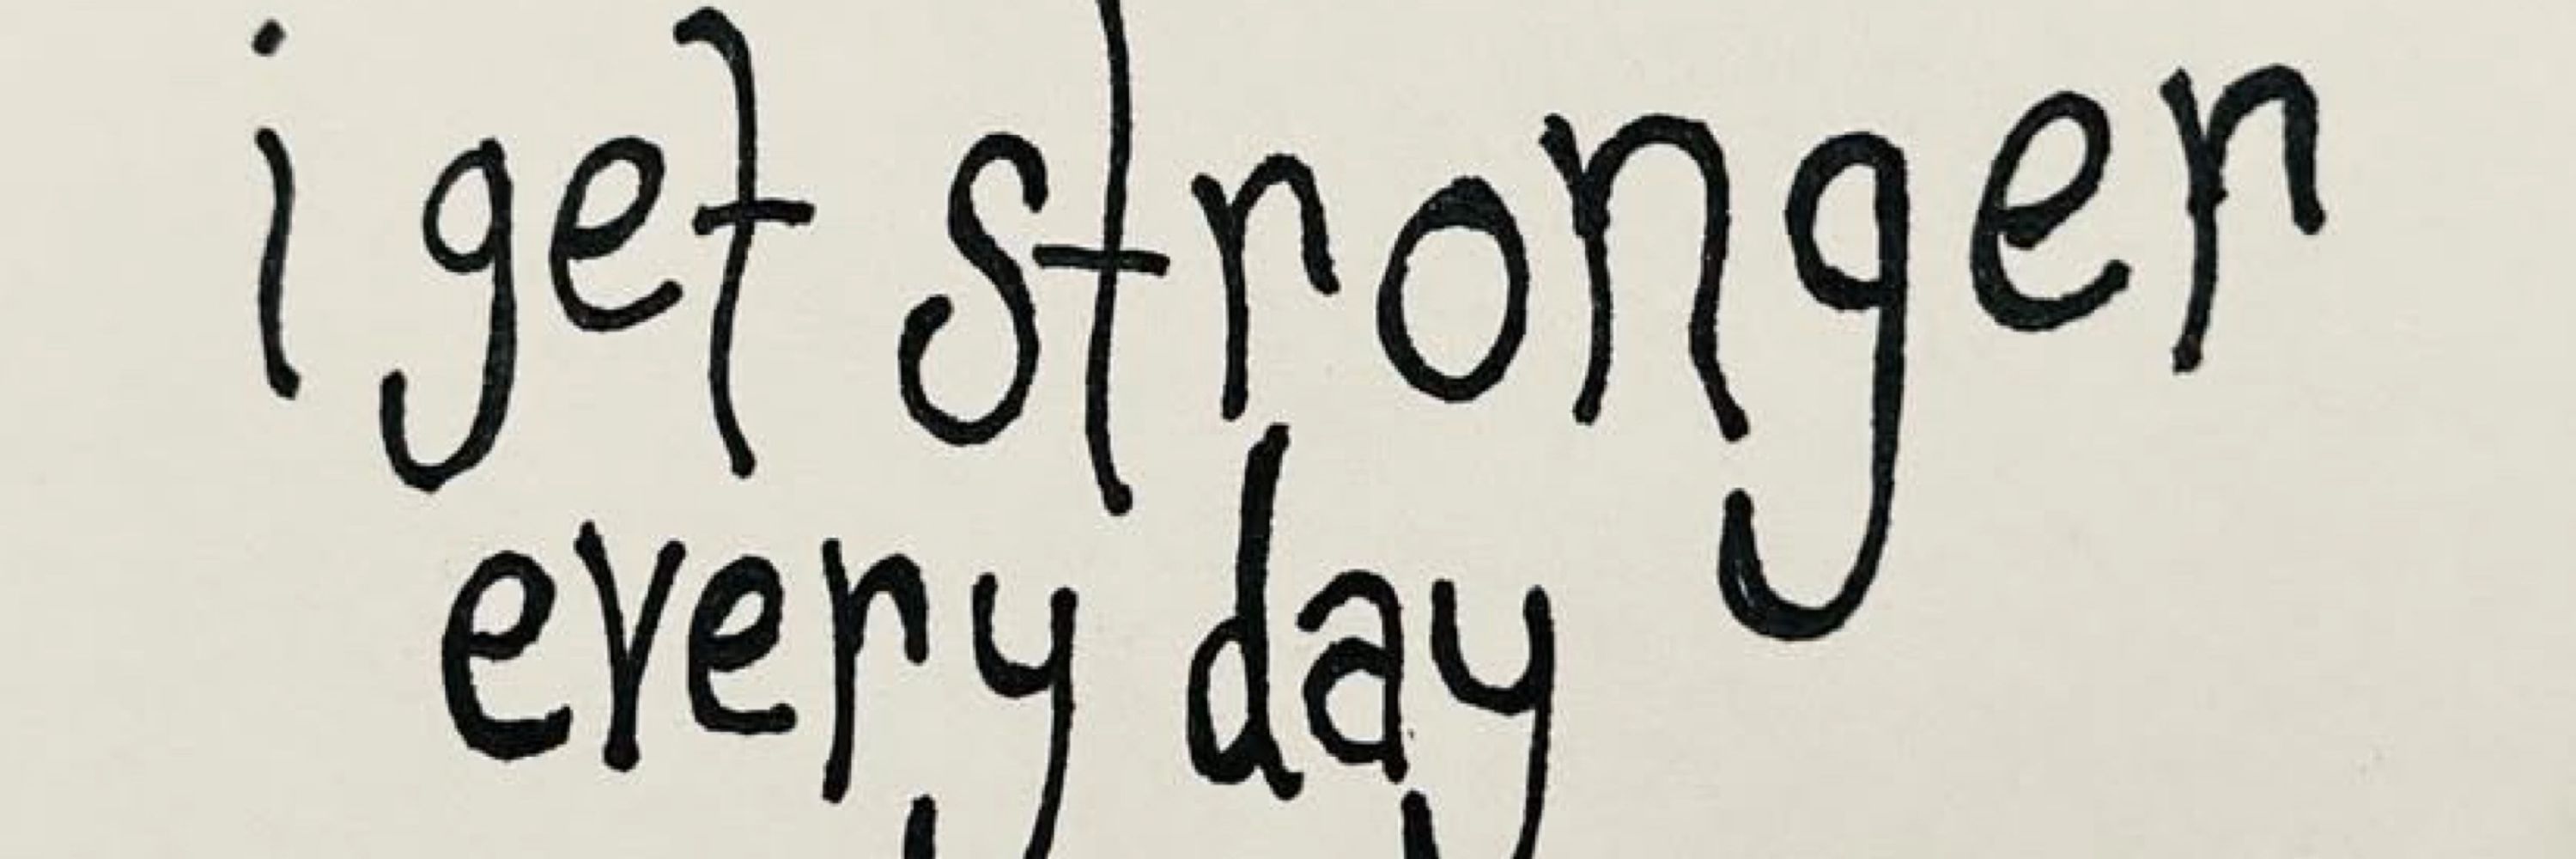 i get stronger
every day